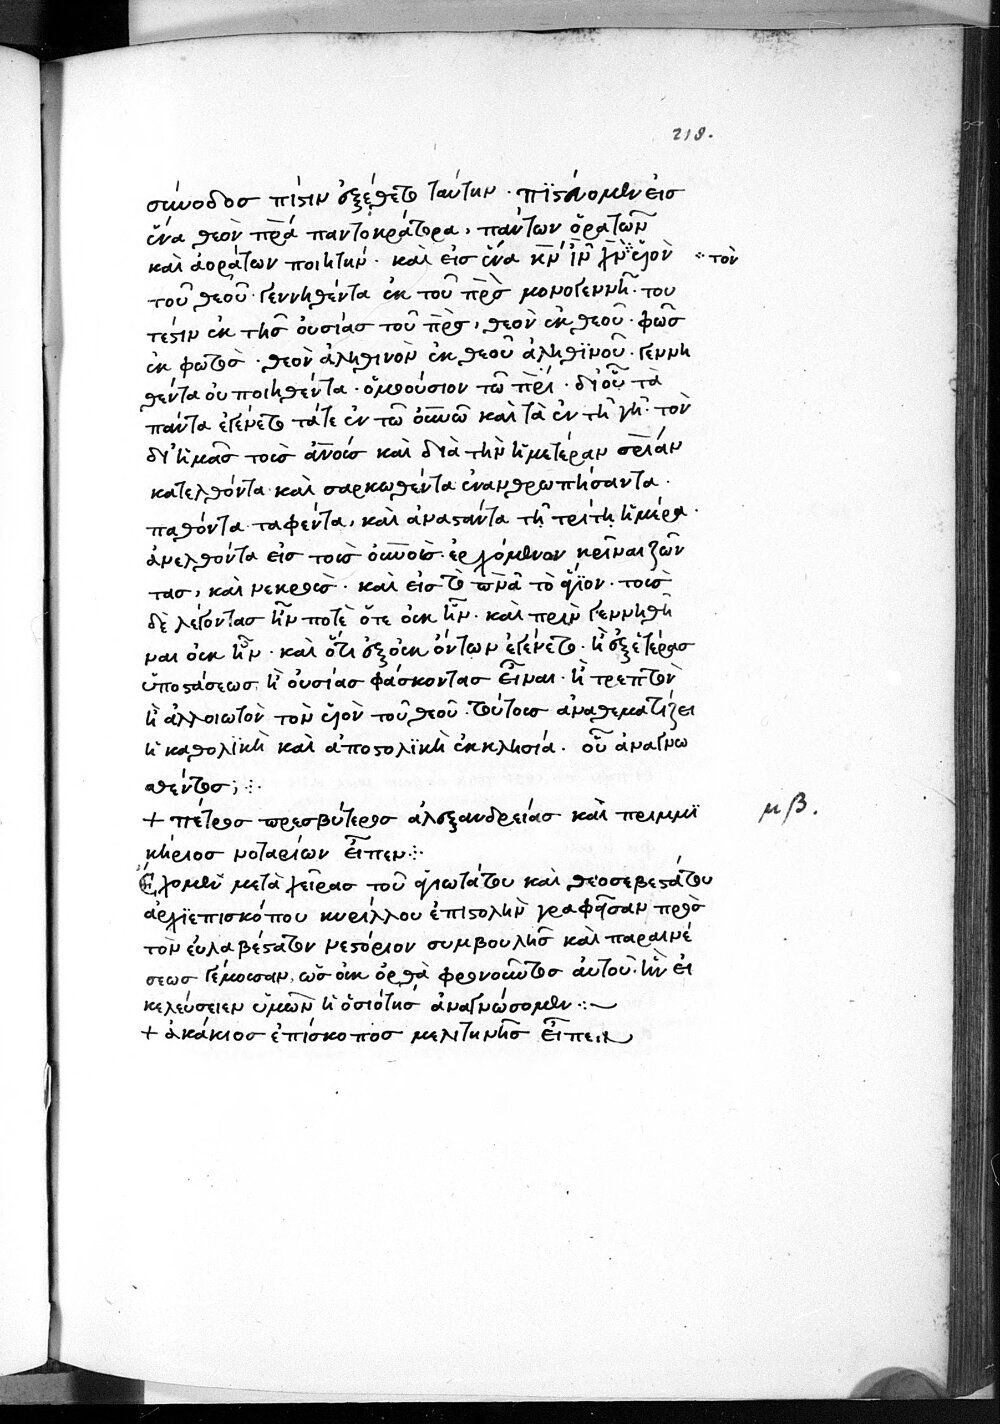 218.
σύνοδος πίστιν ἐξέθετο ταύτην · πϊστεύομεν εἰσ
ἕνα θεὸν π̅ρ̅α παντοκράτορα, πάντων ὁρατῶν
καὶ ἀοράτων ποιητήν · καὶ εἰσ ἕνα κ̅ν̅ ι̅ν̅ χ̅ν̅ ϋἱὸν ·· τὸν
τοῦ θεοῦ · γεννηθέντα ἐκ τοῦ π̅ρ̅σ μονογεννῆ · του
τέστιν ἐκ τῆσ οὐσίασ τοῦ π̅ρ̅σ, θεὸν ἐκ θεοῦ · φῶσ
ἐκ φωτὸσ · θεὸν ἀληθινὸν ἐκ θεοῦ ἀληθϊνοῦ · γεννη
θέντα οὐ ποιηθέντα · ὁμοούσιον τῶ π̅ρ̅ι · δι' οὗ τὰ
πάντα ἐγένετο τάτε ἐν τῶ ο̅υ̅νω καὶ τὰ ἐν τῆ γῆ · τὸν
δι' ἡμᾶσ τοὺσ α̅ν̅ουσ καὶ διὰ τὴν ἡμετέραν σ̅ρ̅ιαν
κατελθόντα καὶ σαρκωθέντα ἐνανθρωπήσαντα ·
παθόντα ταφέντα, καὶ ἀναστάντα τῆ τρίτη ἡμέρα ·
ἀνελθόντα εἰσ τοὺσ ο̅υ̅νουσ · ἐρχόμενον κρῖναι ζῶν
τασ, καὶ νεκροὺσ · καὶ εἰσ τὸ π̅ν̅α τὸ ἅγϊον · τοὺσ
δὲ λέγοντασ ἦν ποτὲ ὅτε οὐκ ἦν · καὶ πρὶν γεννηθῆ
ναι οὐκ ἦν · καὶ ὅτι ἐξ οὐκ ὄντων ἐγένετο · ἢ ἐξ ἑτέρασ
ὑποστάσεωσ ἢ οὐσίασ φάσκοντασ εἶναι · ἢ τρεπτὸν
ἢ ἀλλοιωτὸν τὸν ϋἱὸν τοῦ θεοῦ · τούτουσ ἀναθεματίζει
ἡ καθολϊκὴ καὶ ἀποστολϊκὴ ἐκκλησία · οὗ ἀναγνω
σθέντοσ ; ·:·
+ πέτροσ πρεσβύτεροσ ἀλεξανδρείασ καὶ πριμμϊ μβ.
κήριοσ νοταρίων εἶπεν ·:·
Ἔχομεν μετὰ χεῖρασ τοῦ ἁγιωτάτου καὶ θεοσεβεστάτου
ἀρχϊεπισκόπου κυρίλλου ἐπιστολὴν γραφεῖσαν πρὸσ
τὸν εὐλαβέστατον νεστόριον συμβουλῆσ καὶ παραινέ
σεωσ γέμουσαν, ὡσ οὐκ ὀρθὰ φρονοῦντοσ αὐτοῦ · ἣν εἰ
κελεύσειεν ὑμῶν ἡ ὁσιότησ ἀναγνώσομεν ·:~
+ ἀκάκιοσ ἐπίσκοποσ μελιτηνῆσ εἶπεν